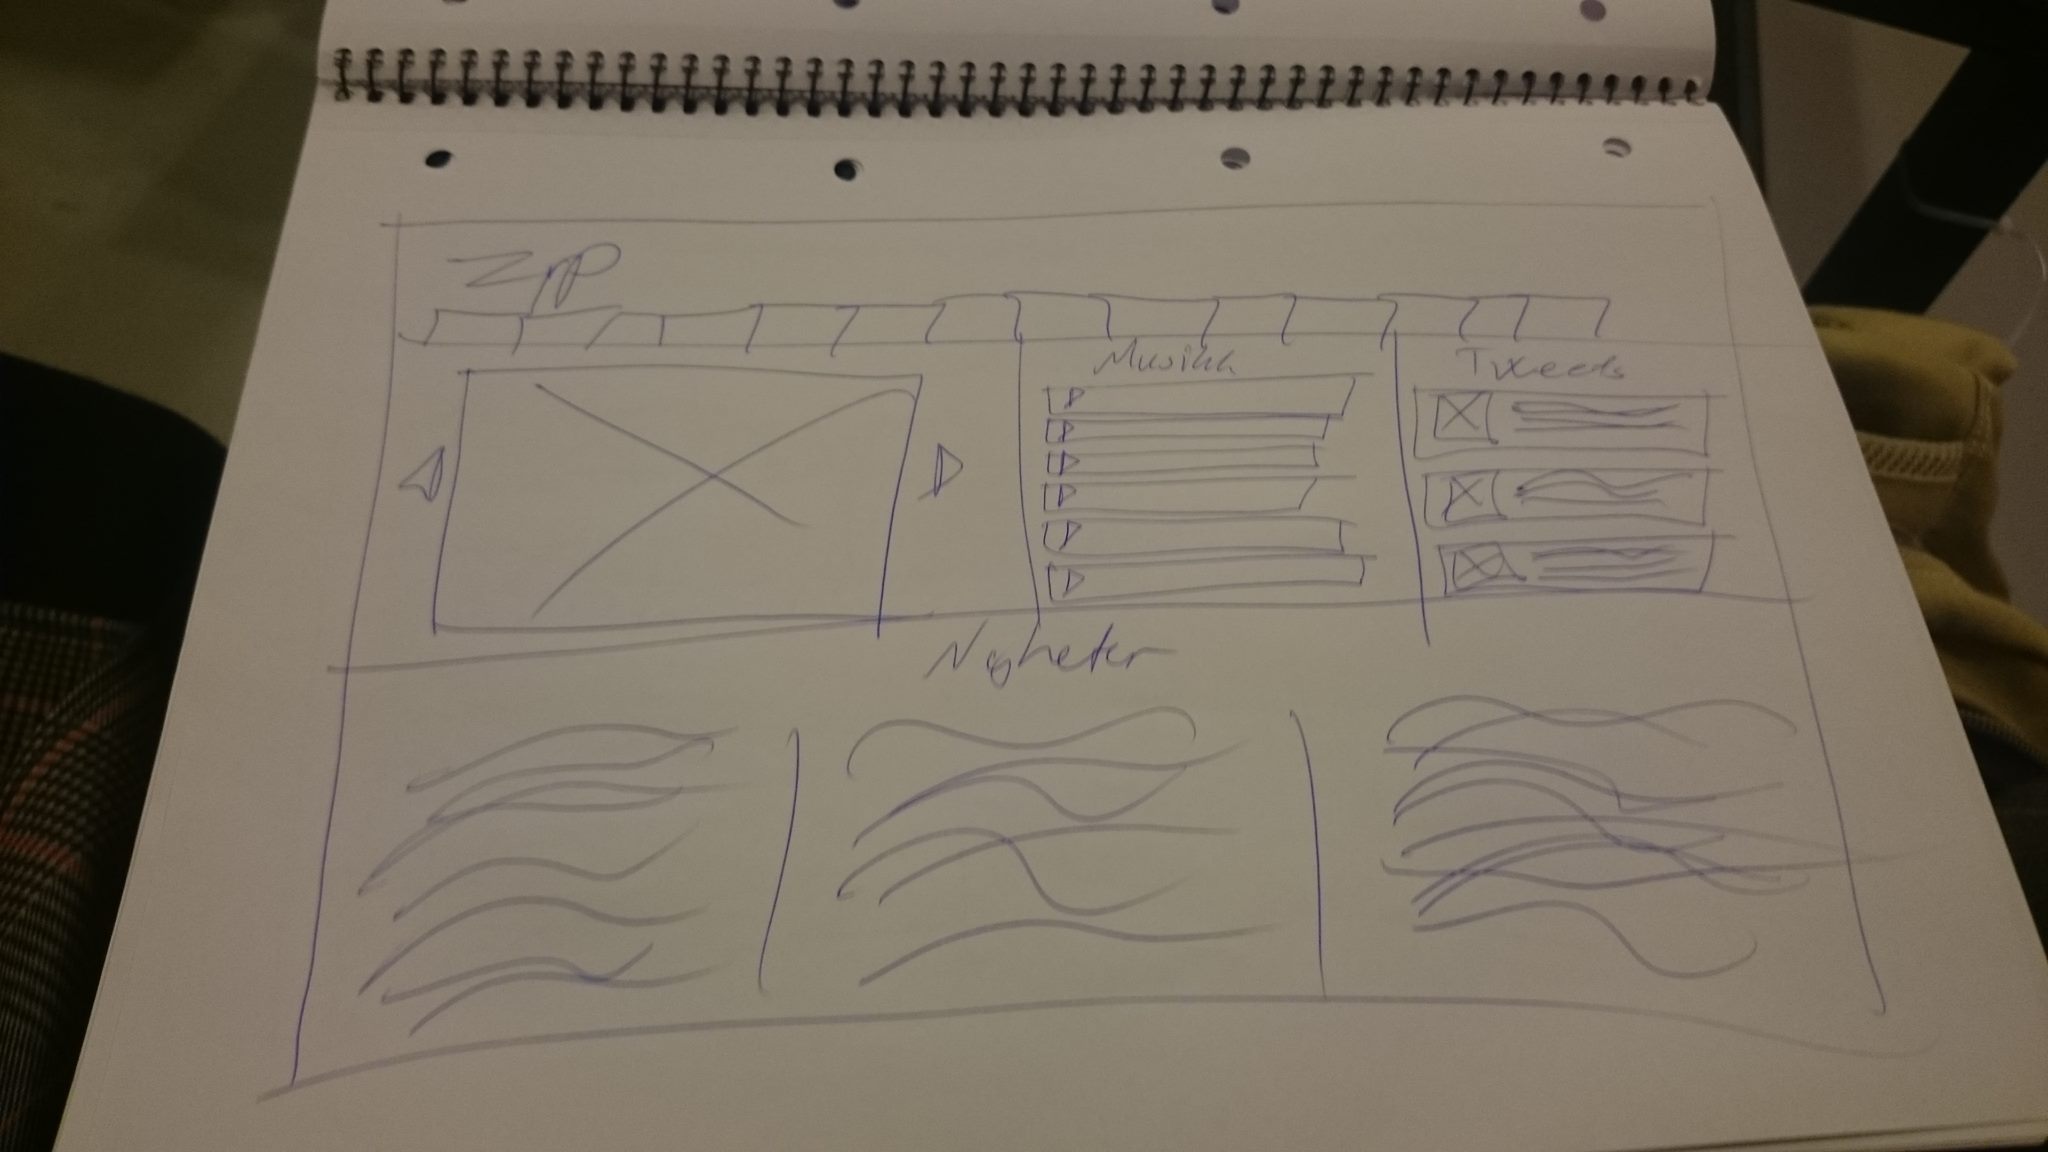 Zipp
Musikk
Tweets
Nyheter